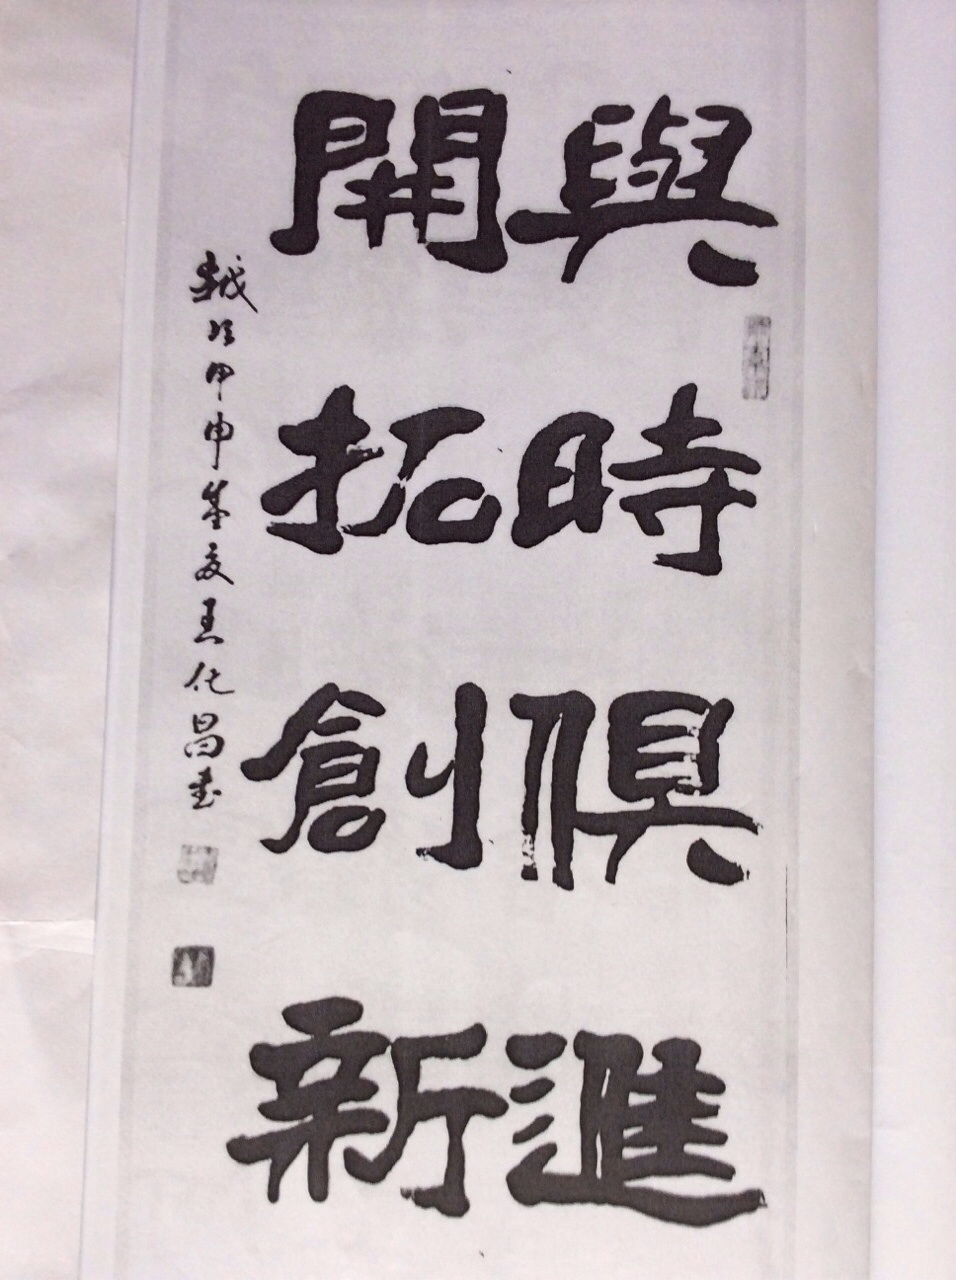 與時俱進
開拓創新
歲次甲申年夏王化昌書